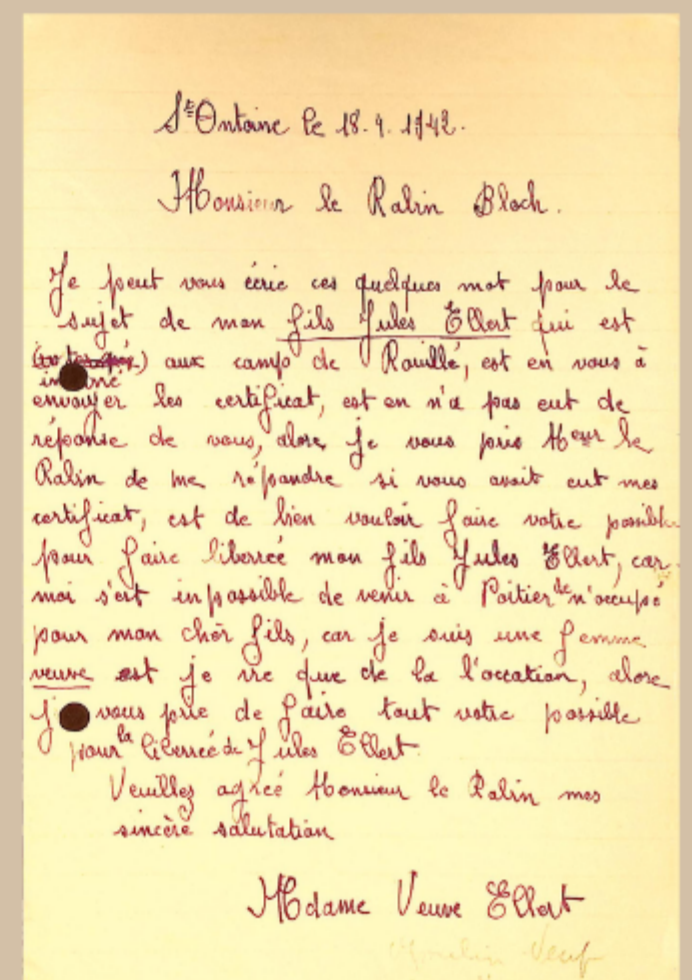 Ste Ontaine le 18.9.1942.
Monsieur le Rabin Bloch.
Je peut vous écrie ces quelques mot pour le
sujet de mon fils Jules Ellert qui est
) aux camp de Rouillé, est en vous à
envoyer les certificat, est en n'a pas eut de
réponse de vous, alore je vous prie Meur le
Rabin de me répondre si vous avait eut mes
certificat, est de bien vouloir faire votre possible
pour faire liberreé mon fils Jules Ellert, car
moi s'est inpossible de venir à Poitier de n'occupé
pour mon chèr fils, car je suis une femme
veuve est je vie que de la l'occation, alore
j vous prie de faire tout votre possible
pour la liberreé de Jules Ellert.
Veuillez agreé Monsieur le Rabin mes
sincère salutation
Mdame Veuve Ellert